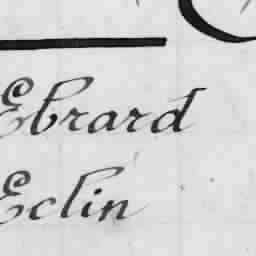 Ebrard
Eclin